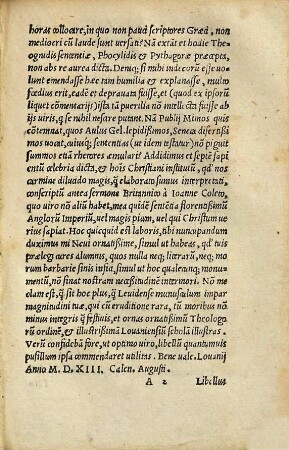 horas collocare, in quo non pauci scriptores Græci, non
mediocri cū laude sunt versati? Nā extāt et hodie The
ognidis sententiæ, Phocylidis & Pythagoræ præcepta,
non abs re aurea dicta. Deniq; si mihi indecorū esse vo
lunt emendasse hæc tam humilia & explanasse, multo
fœdius erit, eadē et deprauata fuisse, et (quod ex ipsorū
liquet cōmentarijs) ista tā puerilia nō intellecta fuisse ab
ijs viris, qui sibi nihil nescire vident. Nā Publij Mimos quis
cōtemnat, quos Aulus Gel. lepidissimos, Senecæ disertissi
mos vocat, cuiusq; sententias (ut idem testatur) nō pi
guit summos etiā rhetores æmulari? Addidimus et septē sapi
entū celebria dicta, & hoīs Christiani institutū, qd nos
carmine dilucido magis, q̄ elaborato sumus interpretati,
conscriptū antea sermone Britannico à Ioanne Coleto,
quo viro nō aliū habet, mea quidē sententia florentissimū
Anglorū Imperiū, uel magis pium, uel qui Christum ue
rius sapiat. Hoc quicquid est laboris, tibi nuncupandum
duximus mi Neui ornatissime, simul ut habeas, qd tuis
prælegas alumnis, quos nulla neq; literarū, neq; mo
rum barbarie sinis infici, simul ut hoc qualecunq; monu-
mentū, nō sinat nostram necessitudinē intermori. Nō me
clam est, q̄ sit hoc plus, q̄ Leuidense munusculum impar
magnitudini tuæ, qui cū eruditione rara, tū moribus nō
minus integris q̄ festiuis, et ornas ornatissimū Theologo
rū ordinē, & illustrissimā Louaniensiū scholā illustras.
Verū confidebā fore, ut optimo uiro, libellū quantumuis
pusillum ipsa commendaret utilitas. Bene uale. Louanij
Anno M. D. XIII. Calen. Augusti.
A 2 Libellus